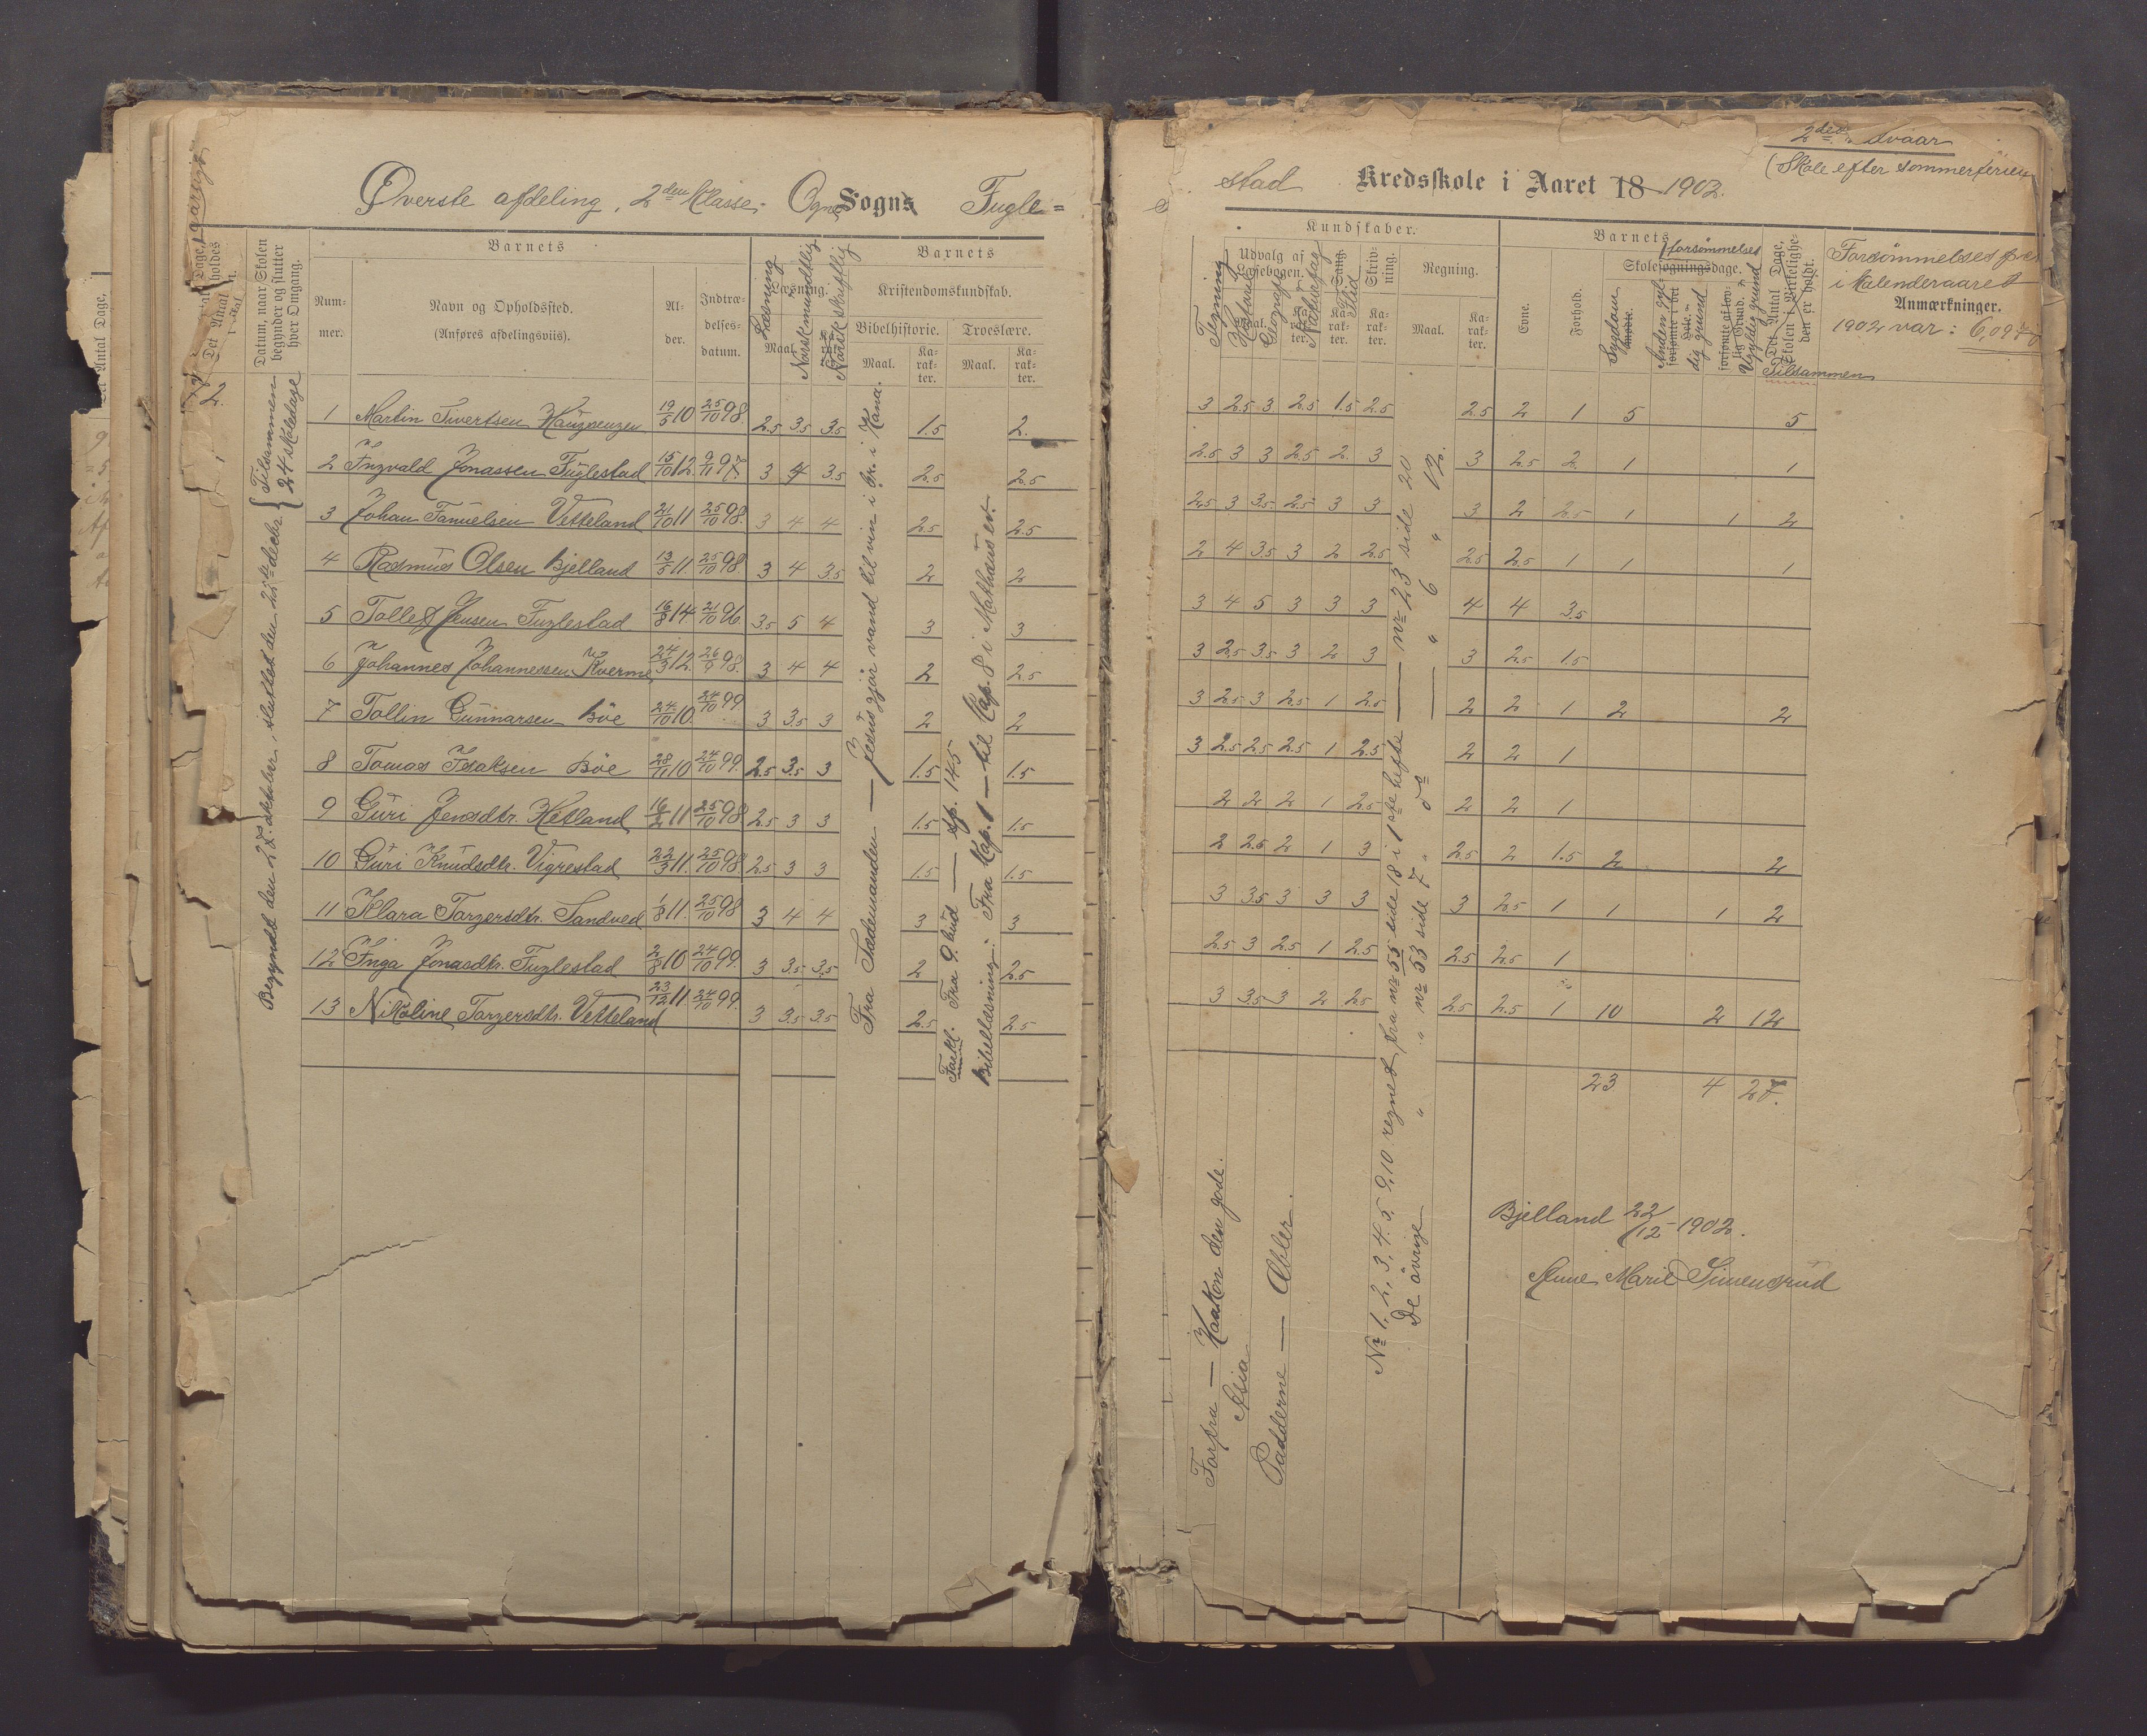 Øverste afdeling, 2den Klasse. Ogne Sogns Fugle=
Det Antal Dage,
holdes
Datum, naar Skolen
begynder og slutter
hver Omgang.
Num-
mer.
Barnets
Navn og Opholdssted.
(Anføres afdelingsviis).
Al-
der.
Indtræ-
delses-
datum.
Læsning
Læsning.
Maal.
Norsk mundtlig
Norsk skriftlig
Barnets
Kristendomskundskab.
Bibelhistorie. Troeslære.
Maal. Ka-
rak-
ter. Maal. Ka-
rak-
ter.
Tilsammen
24 skoledage
1 Martin Sivertsen Haugsengen 19/5 10 25/10 98. 2.5 3.5 3.5 1.5 2.
2 Ingvald Jonassen Fuglestad 15/10 12. 9/11 97. 3 4 3.5 2.5 2.5
3 Johan Samuelsen Vetteland 21/10 11 25/10 98. 3 4 4 2.5 2.5
4 Rasmus Olsen Bjelland 13/5 11 25/10 98. 3 4 3.5 2 2
5 Tollef Jensen Fuglestad 16/8 14 21/10 96. 3.5 5 4 3 3
6 Johannes Johannessen Kverme 24/3 12. 26/9 98. 3 4 4 2 2.5
7 Tollin Gunnarsen Böe 24/10 10. 24/10 99. 3 3.5 3 2 2
8 Tomas Isaksen Böe 28/11 10 24/10 99. 2.5 3.5 3 1.5 1.5
9 Guri Jensdtr. Hetland 16/2 11 25/10 98 2.5 3 3 1.5 1.5
10 Guri Knudsdtr. Vigrestad 22/3 11. 25/10 98. 2.5 3 3 1.5 1.5
11 Klara Torgersdtr. Sandved 1/8 11. 25/10 98 3 4 4 3 3
12 Inga Jonasdtr. Fuglestad 2/8 10 24/10 99. 3 3.5 3.5 2 2.5
13 Nikoline Torgersdtr. Vetteland 23/12 11 24/10 99. 3 3.5 3.5 2.5 2.5
Fra Sædemanden — Jesus gjør vand til vin i br. i Kana.
Forkl. Fra 9. bud — sp. 145
Bibellæsning: Fra Kap. 1 — til Kap. 8 i Mathæus ev.
2den
(Skole efter sommerferien
stad Kredsskole i Aaret 18 1902.
Kundskaber.
Tegning
Udvalg af
Læsebogen.
Historie
Geografi
Naturfag
Sang.
Flid
Ka-
rak-
ter.
Skriv-
ning.
Ka-
rak-
ter.
Regning.
Maal. Ka-
rak-
ter.
Barnets
Evne.
Forhold.
forsømmelses
Skolesøgningsdage.
Sygdom
Anden gyl-
dig grund
Ugyldig grund
Det Antal Dage,
Skolen i Virkelighe-
den er holdt.
Tilsammen
i Kalenderaaret
Anmærkninger.
1902 var: 6,09%
3 2.5 3 2.5 1.5 2.5 2.5 2 1 5 5
2.5 3 3 2.5 2 3 3 2.5 2 1 1
2.5 3 3.5 2.5 3 3 3 2 2.5 1 1 2
2 4 3.5 3 2 2.5 2.5 2.5 1 1 1
3 4 5 3 3 3 4 4 3.5
3 2.5 3.5 3 2 3 3 2.5 1.5
3 2.5 3 2.5 1 2.5 2 2 1 2 2
3 2.5 2.5 2.5 1 2.5 2 2 1
2 2 2 1 2.5 2 2 1
2 2.5 2 1 3 2.5 2 1.5 2 2
3 3.5 3 3 3 3 2.5 1 1 1 2
2.5 3 2.5 1 2.5 2.5 2.5 1
3 3.5 3 2 2.5 2.5 2.5 1 10 2 12
23 4 27.
— Haakon den gode.
Asia
Padderne —
Nr 1, 2, 3, 4, 5, 9, 10 regnet fra nr 55 side 18 i 1ste hefte — nr 23 side 20
De øvrige " " nr 53 side 7 " — " 6 " 12.
Bjelland 22/12 - 1902.
Anne Marie Simensrud